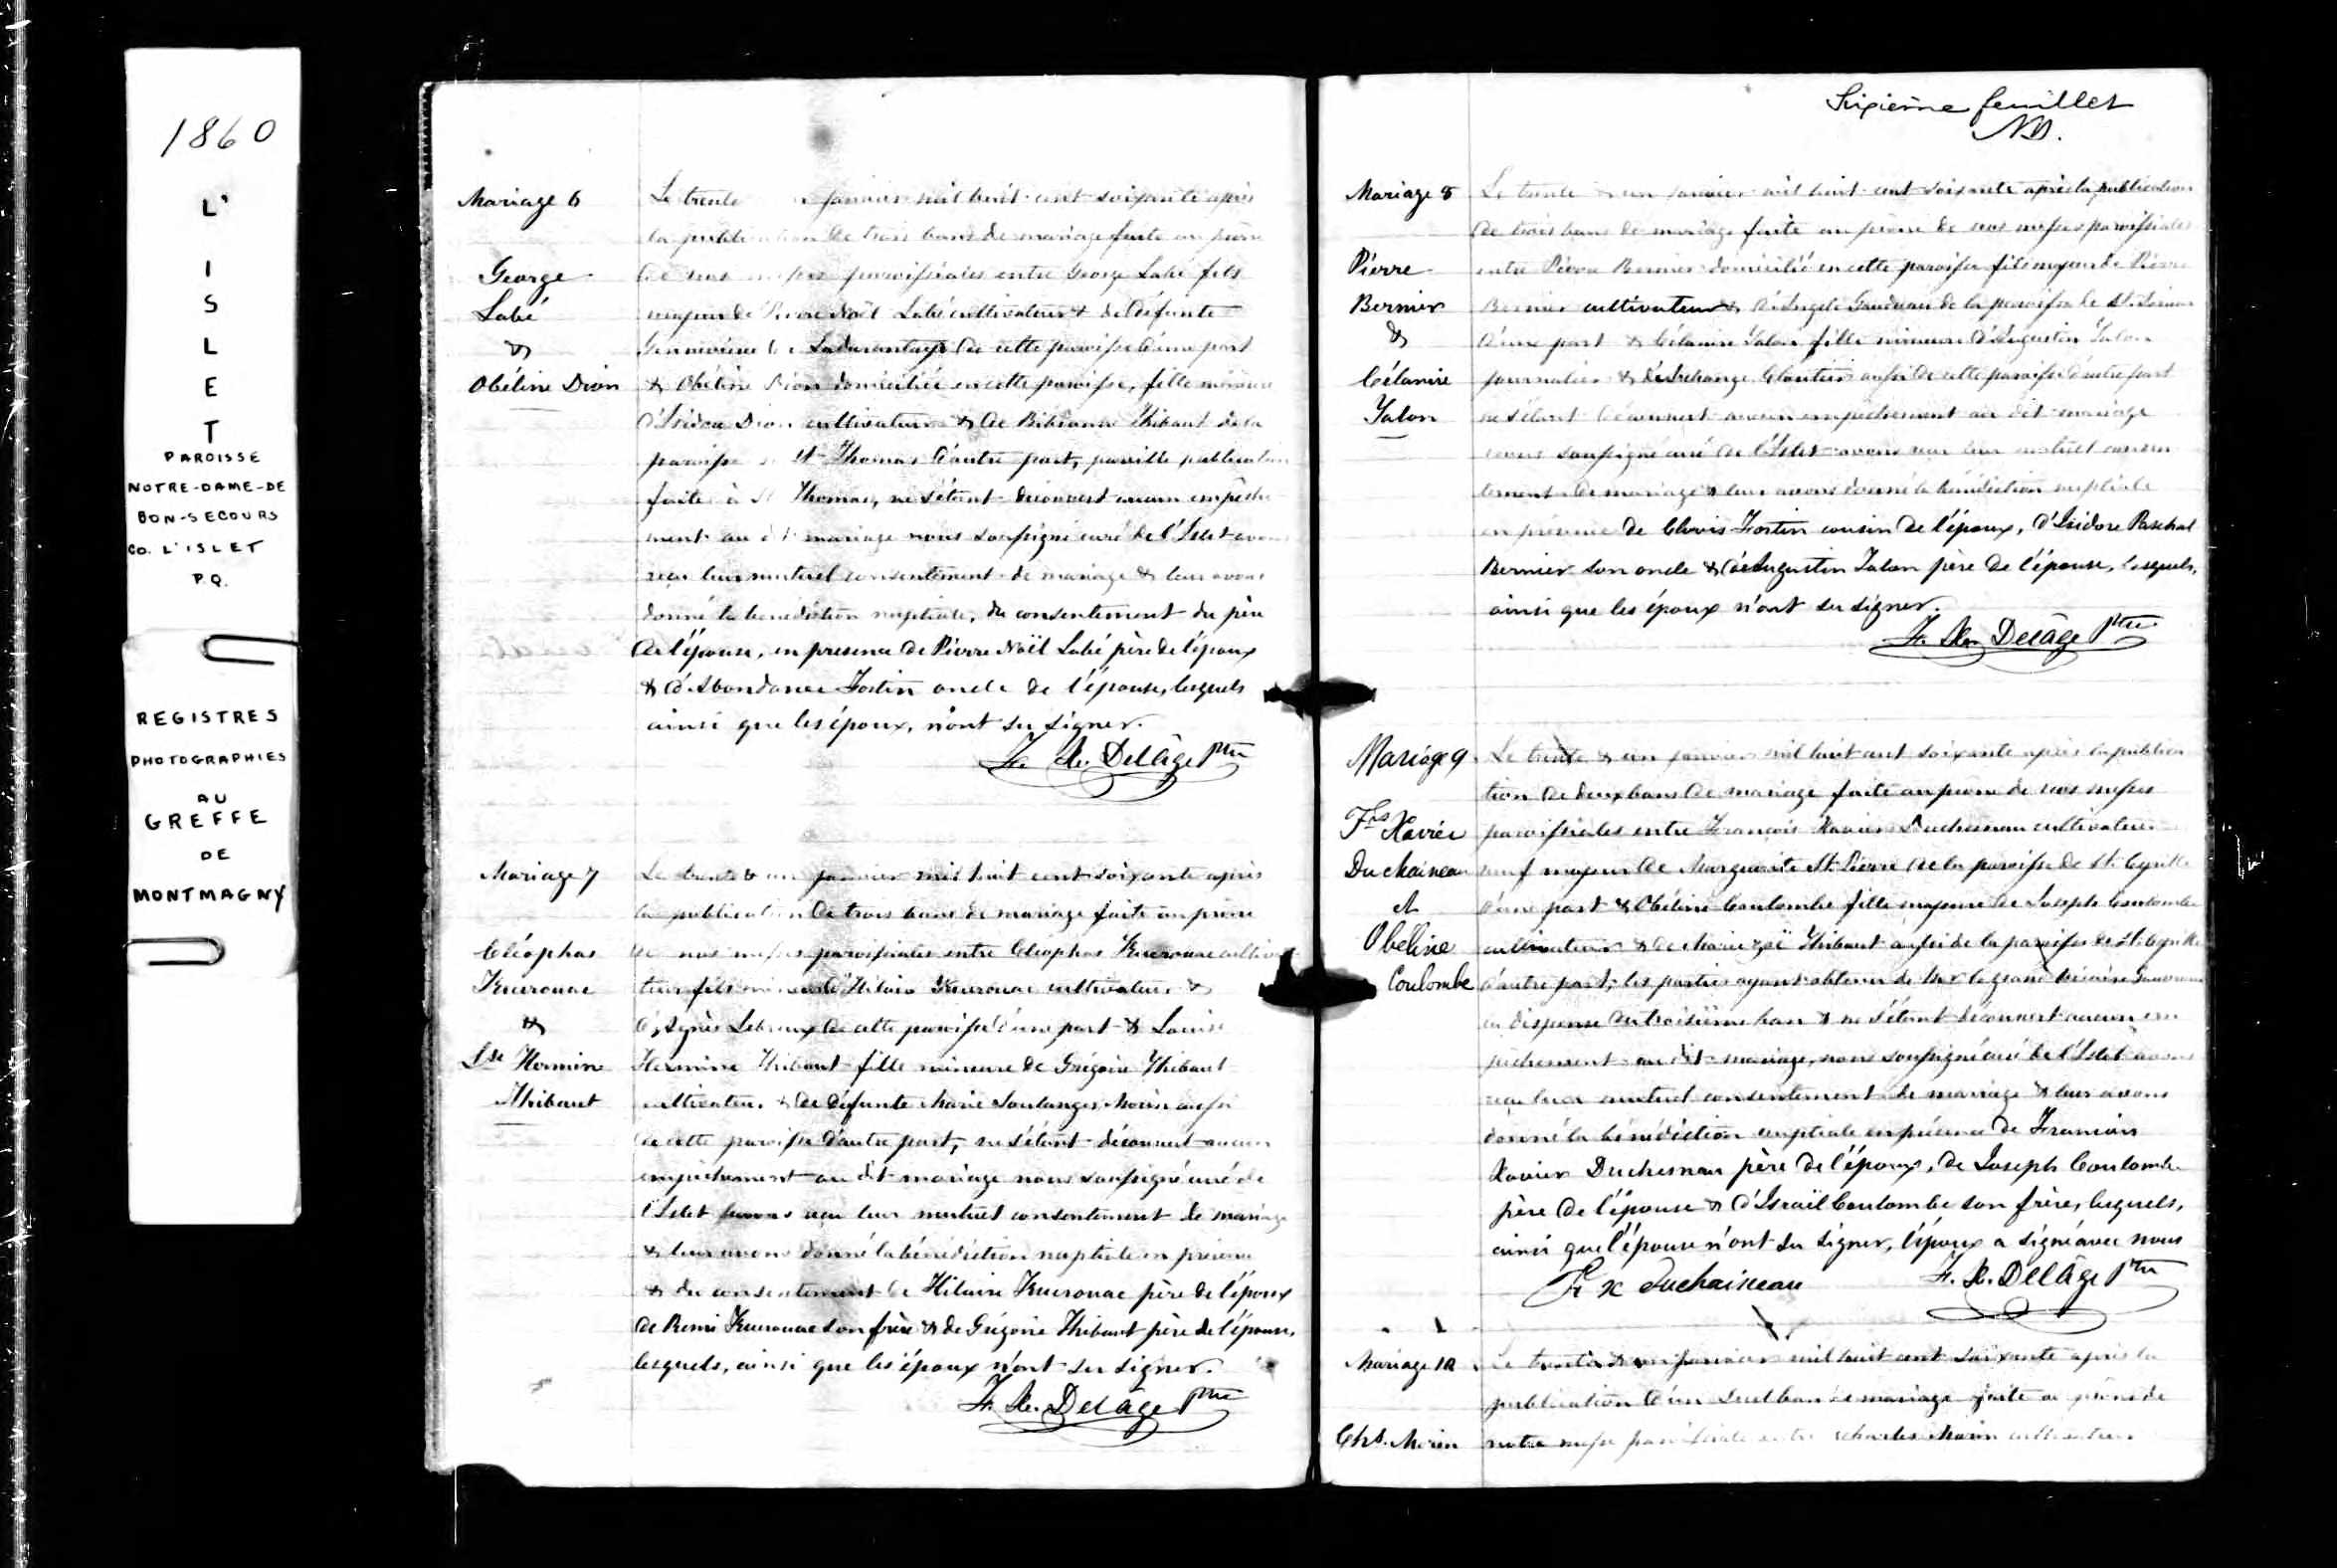 1860
L'
I
S
L
E
T
PAROISSE
NOTRE-DAME-DE
BON-SECOURS
CO. L'ISLET
P.Q.
REGISTRES
PHOTOGRAPHIES
AU
GREFFE
DE
MONTMAGNY
Mariage 6
George
Labé
&
Obéline Dion
Le trente janvier mil huit cent soixante après
la publication de trois bans de mariage faite au prône
de nos messes paroissiales entre George Labé fils
majeur de Pierre Noël Labé cultivateur & de défunte
Geneviève de Ladurantaye de cette paroisse d'une part
& Obéline Dion domiciliée en cette paroisse, fille mineure
d'Isidore Dion cultivateur & de Bibianne Thibaut de la
paroisse St Thomas d'autre part, pareille publication
faite à St Thomas, ne s'étant découvert aucun empêche
ment au dit mariage nous soussigné curé de l'Islet avons
reçu leur mutuel consentement de mariage & leur avons
donné la bénédiction nuptiale, du consentement du père
de l'épouse, en presence de Pierre Noël Labé père de l'époux
& d'Abondance Fortin oncle de l'épouse, lesquels
ainsi que les époux, n'ont su signer.
F. X. Delâge Ptre
Mariage 7
Cléophas
Kuerouac
&
Lse Hermine
Thibaut
Le trente & un janvier mil huit cent soixante après
la publication de trois bans de mariage faite au prône
de nos messes paroissiales entre Cléophas Kuerouac cultiva
teur fils mineur d'Hilaire Kuerouac cultivateur &
d'Agnès Lebreux de cette paroisse d'une part & Louise
Hermine Thibaut fille mineure de Grégoire Thibaut
cultivateur & de défunte Marie Soulanges Morin aussi
de cette paroisse d'autre part, ne s'étant découvert aucun
empêchement au dit mariage nous soussigné curé de
l'Islet avons reçu leur mutuel consentement de mariage
& leur avons donné la bénédiction nuptiale en présence
& du consentement de Hilaire Kuerouac père de l'époux
de Remi Kuerouac son frère & de Grégoire Thibaut père de l'épouse,
lesquels, ainsi que les époux n'ont su signer.
F. X. Delâge Ptre
Sixième feuillet
Mariage 8
Pierre
Bernier
&
Célanire
Jalon
Le trente & un janvier mil huit cent soixante après la publication
de trois bans de mariage faite au prône de nos messes paroissiales
entre Pierre Bernier domicilié en cette paroisse fils majeur de Pierre
Bernier cultivateur & d'Angele Gaudreau de la paroisse de St
d'une part & Célanire Jalon fille mineure d'Augustin Jalon
journalier & de Cloutier aussi de cette paroisse d'autre part
ne s'étant découvert aucun empêchement au dit mariage
nous soussigné curé de l'Islet avons reçu leur mutuel consen
tement de mariage & leur avons donné la bénédiction nuptiale
en présence de Clovis Fortin cousin de l'époux, d'Isidore Paschal
Bernier son oncle & d'Augustin Jalon père de l'épouse, lesquels,
ainsi que les époux n'ont su signer.
F. X. Delâge Ptre
Mariage 9
Frs Xavier
Duchaineau
et
Obeline
Coulombe
Le trente & un janvier mil huit cent soixante après la publica
tion de deux bans de mariage faite au prône de nos messes
paroissiales entre François Xavier Duchesneau cultivateur
veuf majeur de Marguerite St Pierre de la paroisse de St Cyrille
d'une part & Obéline Coulombe fille majeure de Joseph Coulombe
cultivateur & de Marie Thibaut aussi de la paroisse de St Cyrille
d'autre part, les parties ayant obtenu de Mr le grand Vicaire
la dispense du troisième ban & ne s'étant découvert aucun em
pêchement au dit mariage, nous soussigné curé de l'Islet avons
reçu leur mutuel consentement de mariage & leur avons
donné la bénédiction nuptiale en présence de François
Xavier Duchesneau père de l'époux, de Joseph Coulombe
père de l'épouse & d'Israël Coulombe son frère, lesquels,
ainsi que l'épouse n'ont su signer, l'époux a signé avec nous
F x Duchaineau F. X. Delâge Ptre
Mariage 10
Chs. Morin
Le trente & un janvier mil huit cent soixante après la
publication d'un seul ban de mariage faite au prône de
notre messe paroissiale entre Charles Morin cultivateur